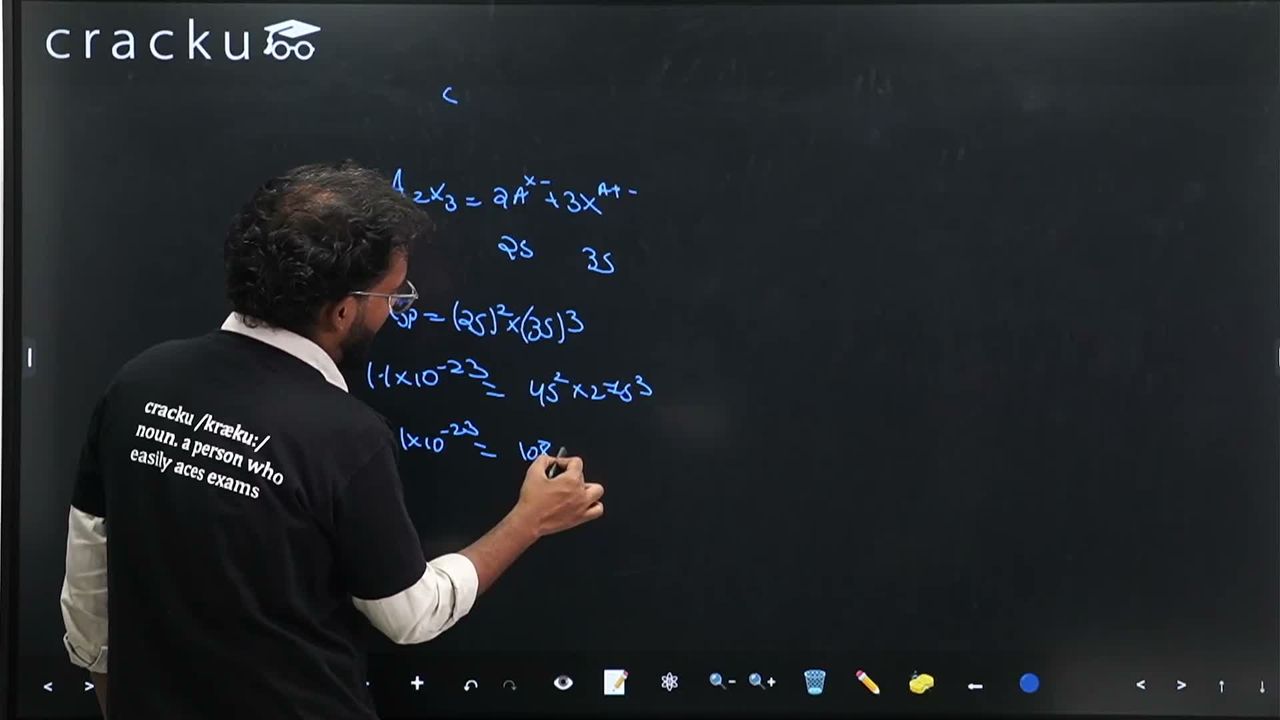 cracku
c
A₂X₃ = 2A^x- + 3X^A+ -
2s 3s
sp = (2s)² × (3s)³
1.1×10⁻²³ = 4s² × 27s³
1×10⁻²³ = 108
cracku /kræku:/
noun. a person who
easily aces exams